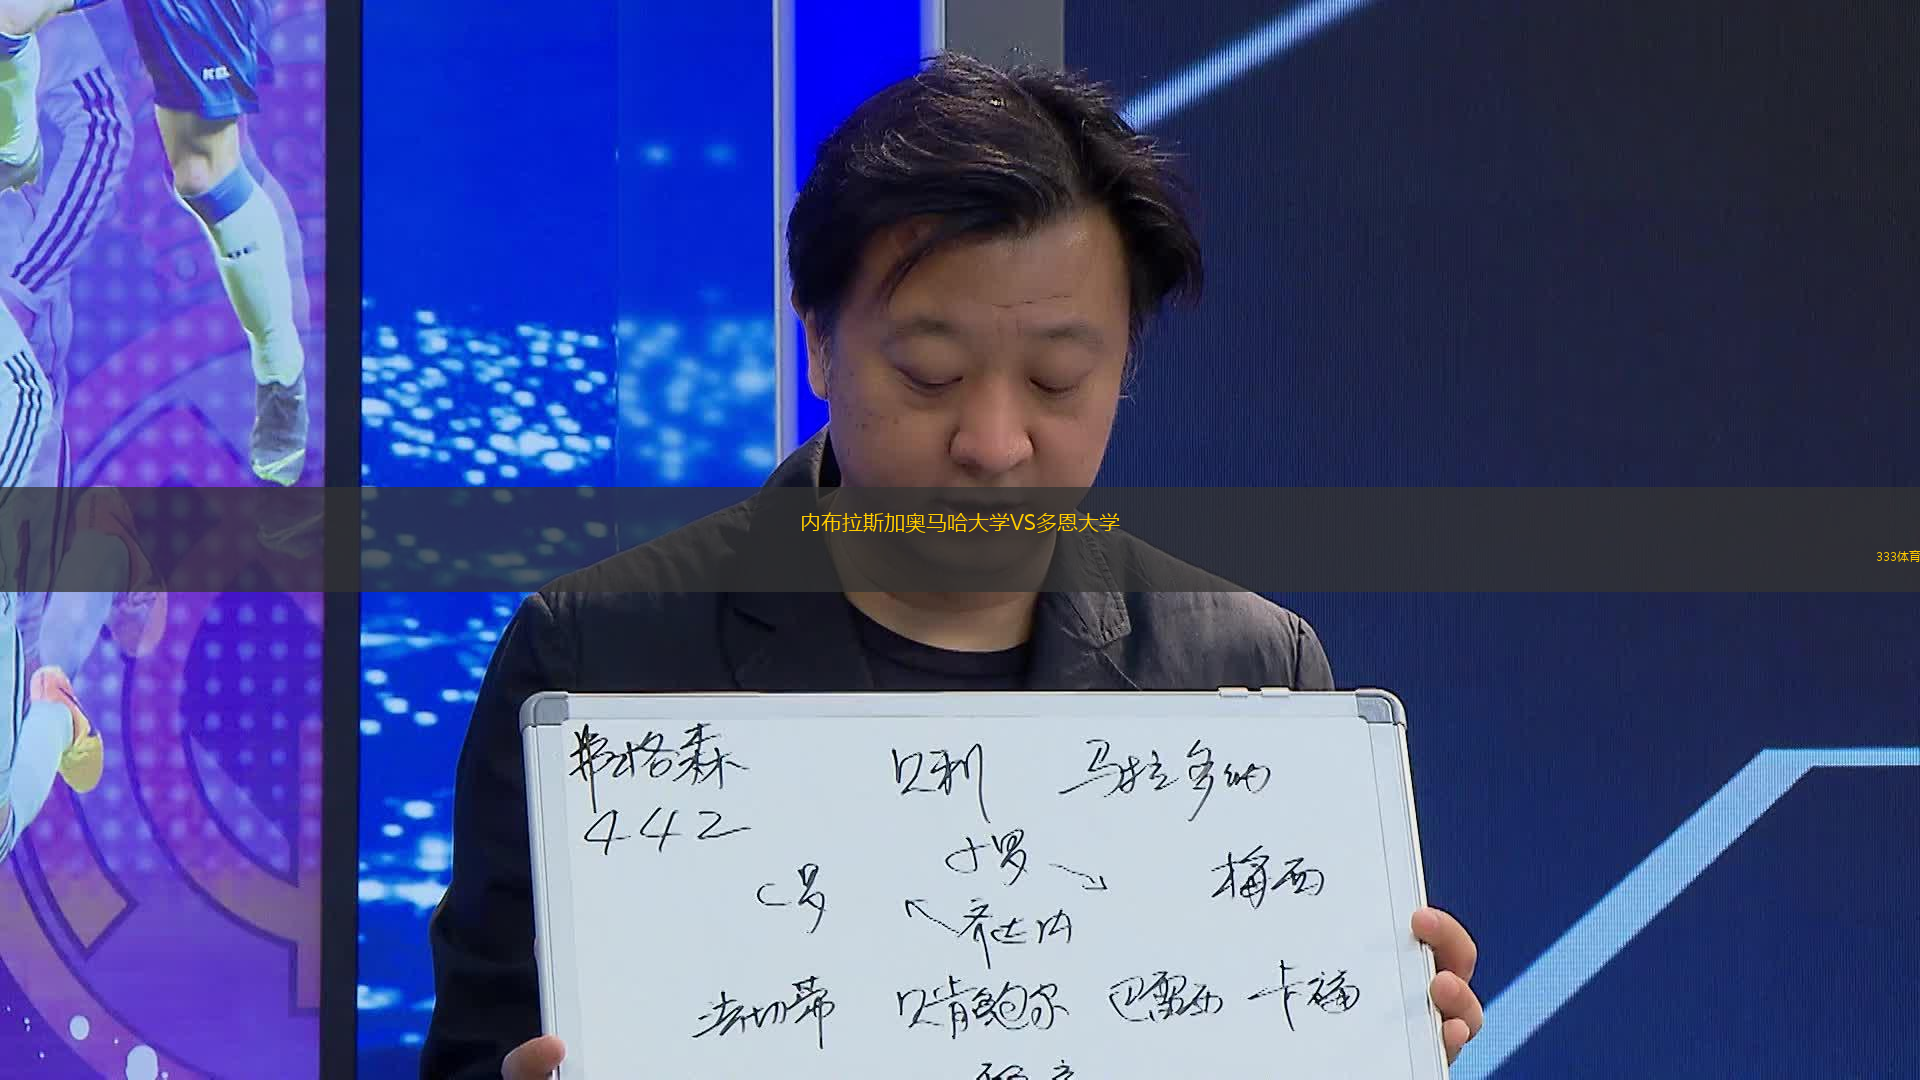 内布拉斯加奥马哈大学VS多恩大学
333体育
弗格森 贝利 马拉多纳
442
小罗
C罗 梅西
齐达内
法切蒂 贝肯鲍尔 巴雷西 卡福